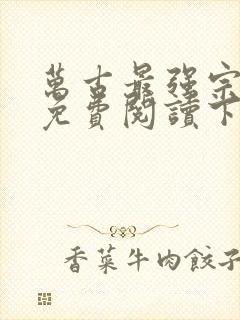 萬古最強宗
免費閱讀下
香菜牛肉餃子